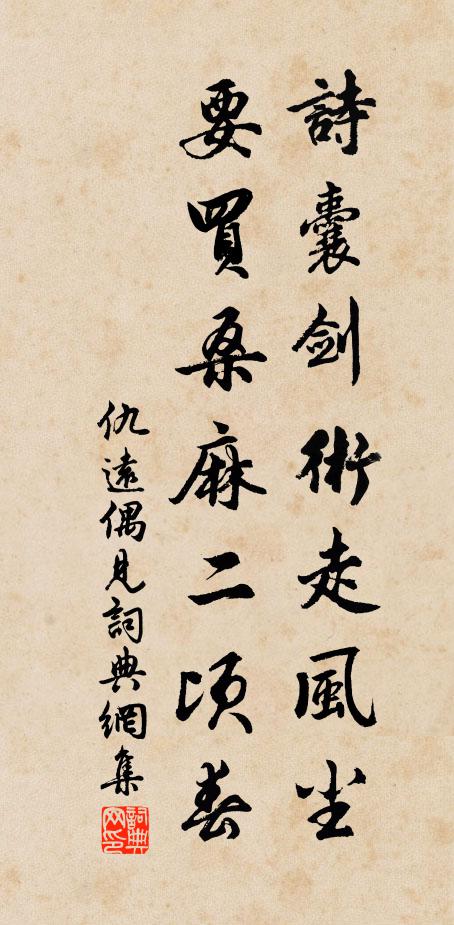 詩囊剑術走風尘
要買桑麻二頃春
仇遠偶見詞典網集
詞典网印